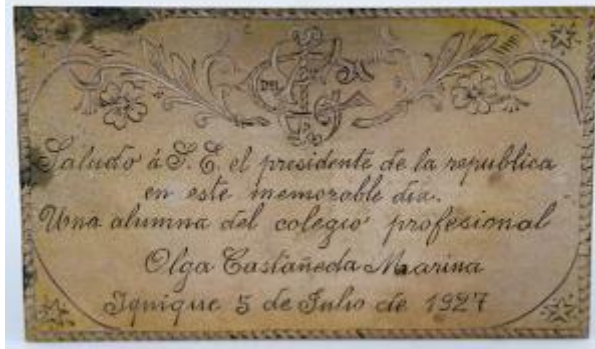 Saludo á S. E. el presidente de la republica
en este memorable dia.
Una alumna del colegio profesional
Olga Castañeda Maarina
Iquique 5 de Julio de 1927